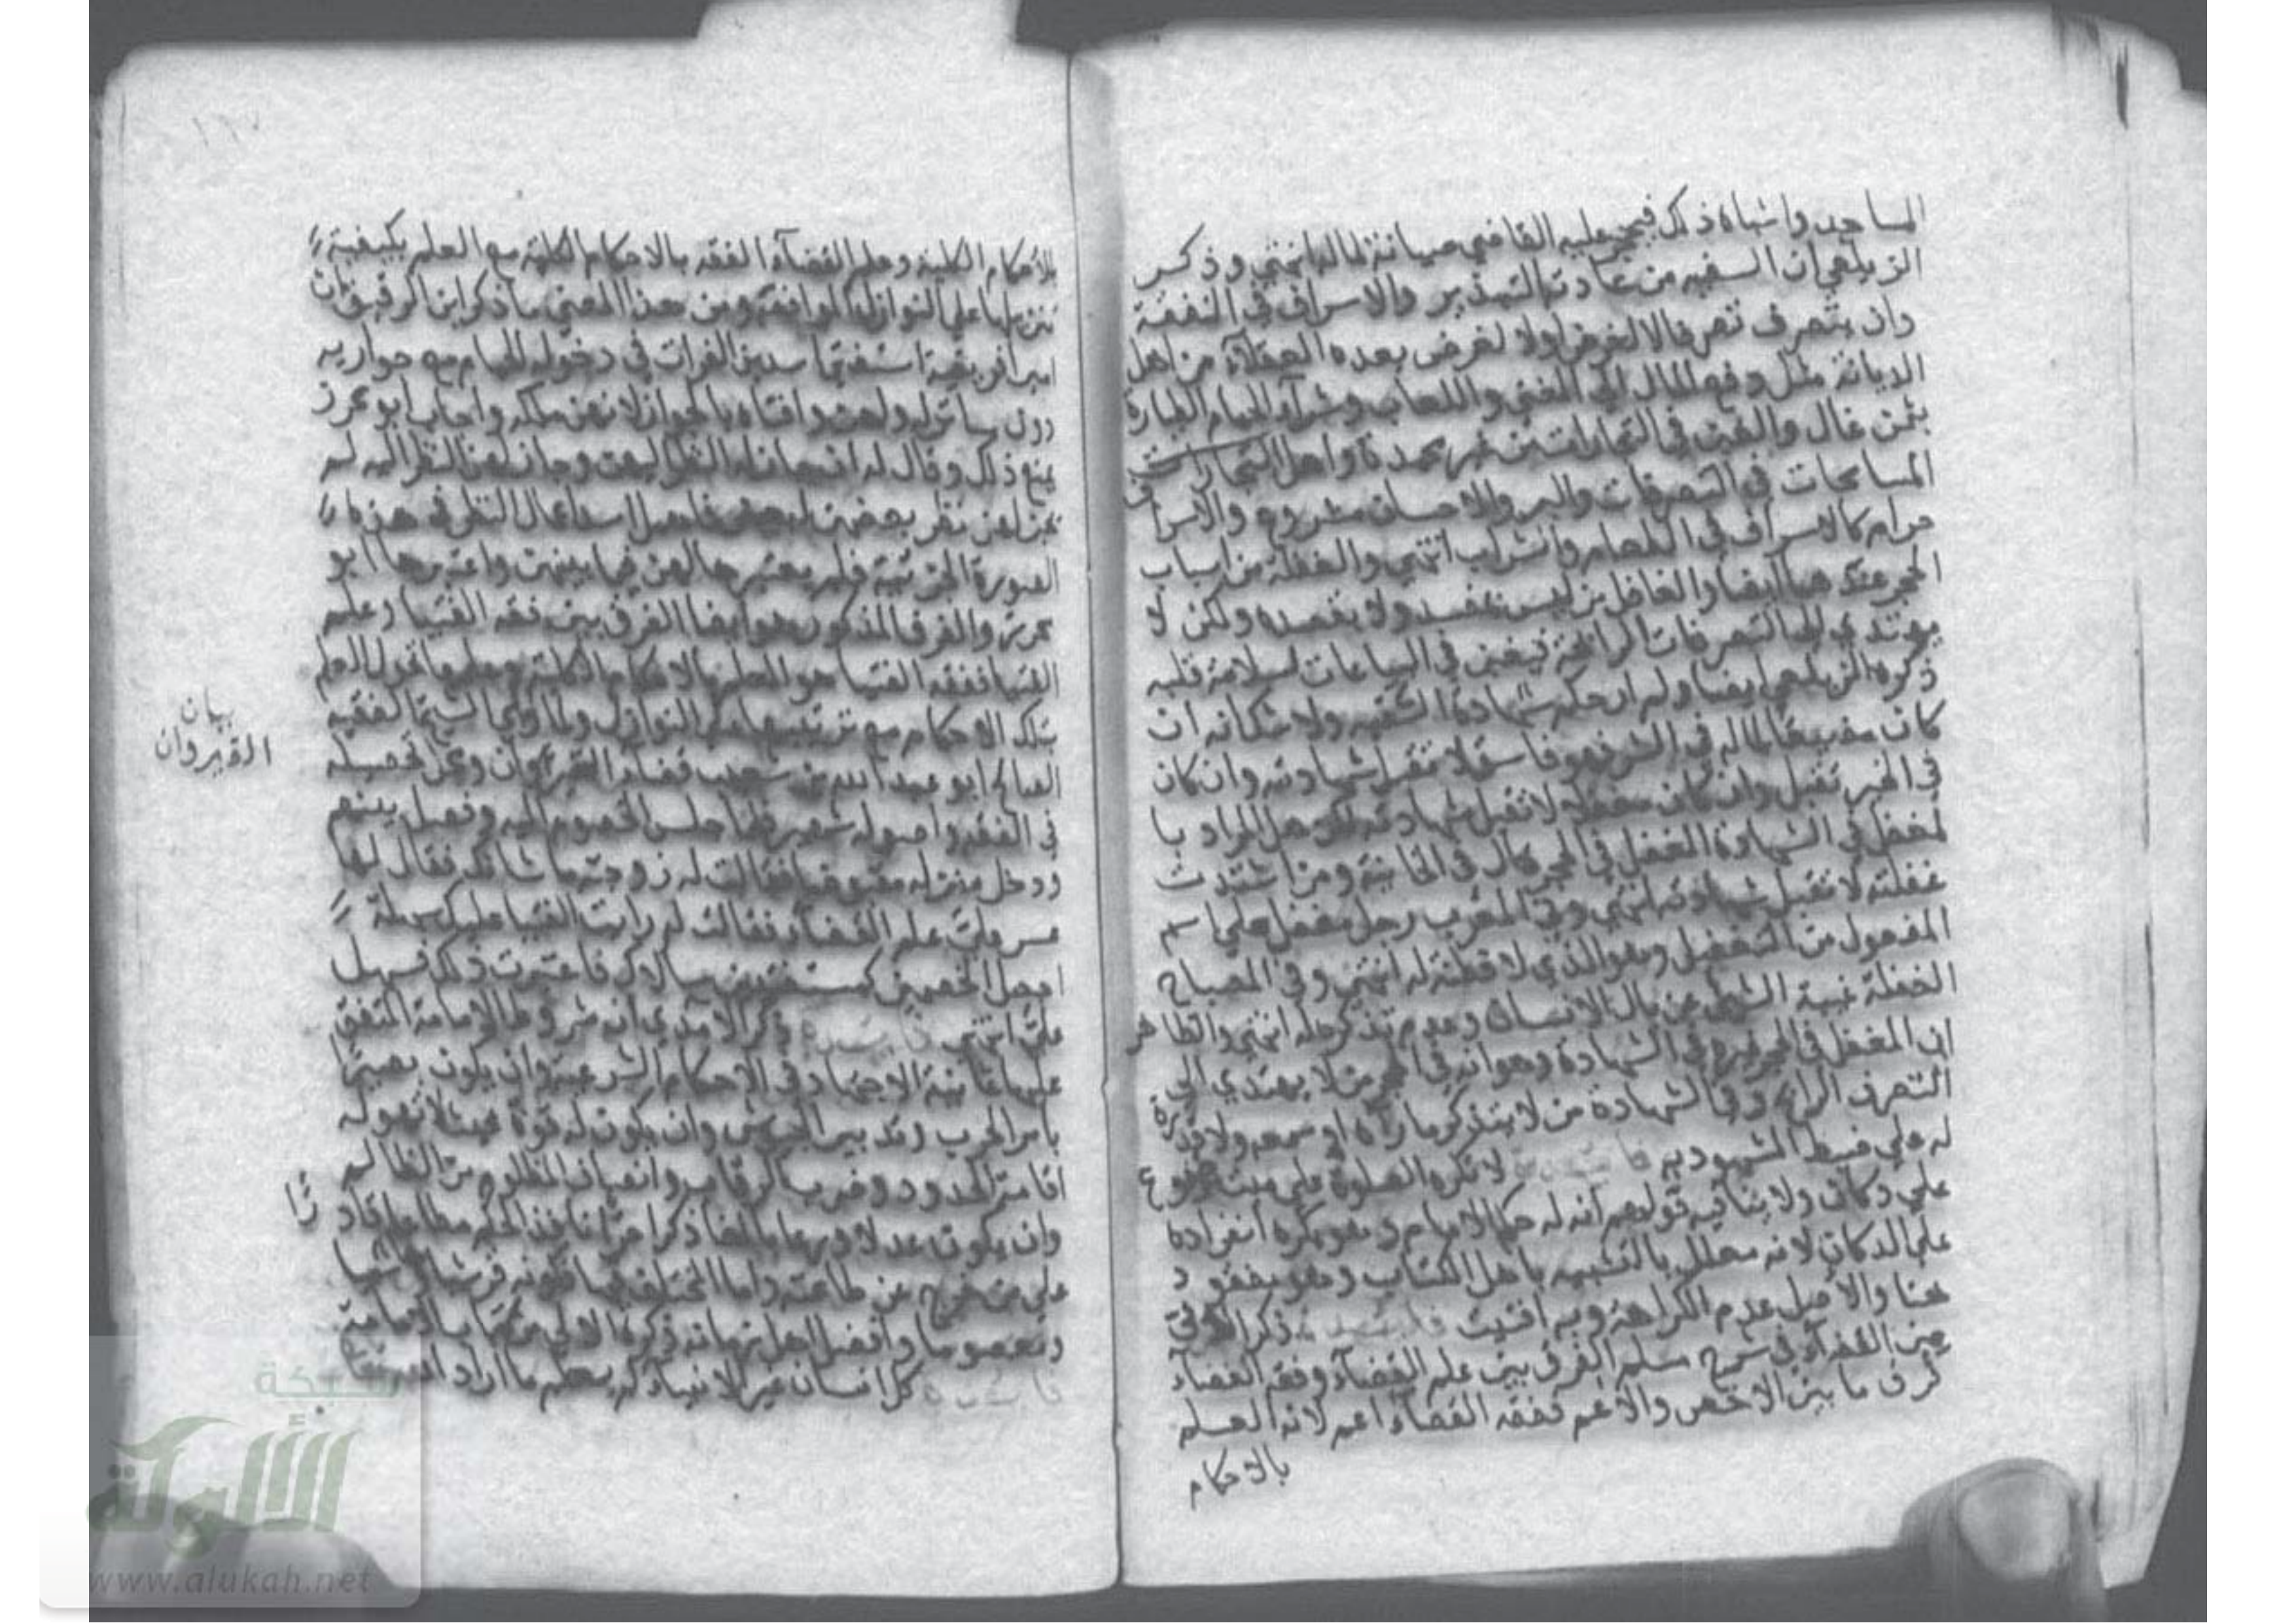 المساجد واشباه ذلك فيحجر عليه القاضي صيانة لماله انتهي وذكر
الزيلعي ان السفيه من عادته التبذير والاسراف في النفقة
وان يتصرف تصرفا لا لغرض اولا لغرض بعده العقلاء من اهل
الديانة مثل دفع المال الي المغني واللعاب وشراء الحمام الطيارة
بثمن غال والغبن في التجارات من غير محمدة واصل التجارات
المسامحات في التصرفات والبر والاحسان مشروع والاسراف
حرام كالاسراف في الطعام والشراب انتهي والغفلة من اسباب
الحجر عندهما ايضا والغافل ليس بمفسد ولا يقصده ولكن لا
يهتدي الي التصرفات الرابحة فيغبن في البياعات لسلامة قلبه
ذكره الزيلعي ايضا ولم ار حكم شهادة السفيه ولا شك انه ان
كان مضيعا لماله في الشر فهو فاسق لا تقبل شهادته وان كان
في الخير تقبل وان كان مغفلا لا تقبل شهادته لكن هل المراد با
لمغفل في الشهادة المغفل في الحجر قال في الخانية ومن اشتدت
غفلته لا تقبل شهادته انتهي وفي المغرب رجل مغفل علي اسم
المفعول من التغفيل وهو الذي لا فطنة له انتهي وفي المصباح
الغفلة غيبة الشئ عن بال الانسان وعدم تذكره له انتهي والظاهر
ان المغفل في الحجر غيره في الشهادة وهو انه في الحجر من لا يهتدي الي
التصرف الرابح وفي الشهادة من لا يتذكر ما رآه او سمعه ولا قدرة
له علي ضبط المشهود به فائدة لا تكره الصلوة علي ميت موضوع
علي دكان ولا ينافيه قولهم ان له حكم الامام وهو يكره انفراده
علي الدكان لانه معلل بالتشبيه باهل الكتاب وهو مفقود
هنا والاصل عدم الكراهة وبه افتيت فائدة ذكر العراقي
من الفقرآء في شرح مسلم الفرق بين علم القضآء وفقه القضآء
فرق ما بين الاخص والاعم ففقه القضآء اعم لانه العلم
بالاحكام
بالاحكام الكلية وعلم القضآء الفقه بالاحكام الكلية مع العلم بكيفية
تنزيلها علي النوازل الواقعة ومن هذا المعني ما ذكر ابن الرقيق ان
امير افريقية استفتي اسد بن الفرات في دخول الحمام مع جواريه
دون ساتر له ولهن وافتاه بالجواز لانهن ملكه واجاب ابو محرز
بمنع ذلك وقال له ان جاز لك النظر اليهن وجاز لهن النظر اليك لم
يجز لهن نظر بعضهن لبعض فاهمل اسد اعمال النظر في هذه
الصورة الجزئية فلم يعتبر حالهن فيما بينهن واعتبرها ابو
محرز والفرق المذكور هو ايضا الفرق بين فقه الفتيا وعلم
الفتيا ففقه الفتيا هو العلم بالاحكام الكلية وعلمها هو العلم
بتلك الاحكام مع تنزيلها علي النوازل ولما ولي الشيخ الفقيه
الصالح ابو عبد الله بن شعيب قضاء القيروان ومحل تحصيله
في الفقه واصوله شهير فلما جلس الخصوم اليه وفصل بينهم
ودخل منزله مقبوضا فقالت له زوجته ما شانك فقال لها
عسر علي علم القضآء فقالت له رايت الفتيا عليك سهلة
اجعل الخصمين كمستفتيين سالاك فاعتبرت ذلك فسهل
علي انتهي فائدة ذكر الآمدي ان شروط الامامة المتفق
عليها ثمانية الاجتهاد في الاحكام الشرعية وان يكون بصيرا
بامر الحرب وتدبير الجيوش وان يكون له قوة بحيث لا تهوله
اقامة الحدود وضرب الرقاب وانصاف المظلوم من الظالم
وان يكون عدلا ورعا بالغا ذكرا حرا نافذ الحكم مطاعا قادرا
علي من خرج عن طاعته واما المختلف فيها فكونه قرشيا هاشميا
ومعصوما وافضل اهل زمانه ذكره الولي من كتاب الامامة
فائدة كل انسان غير الانبيآء لم يعلم ما اراد الله
بيان
القيروان